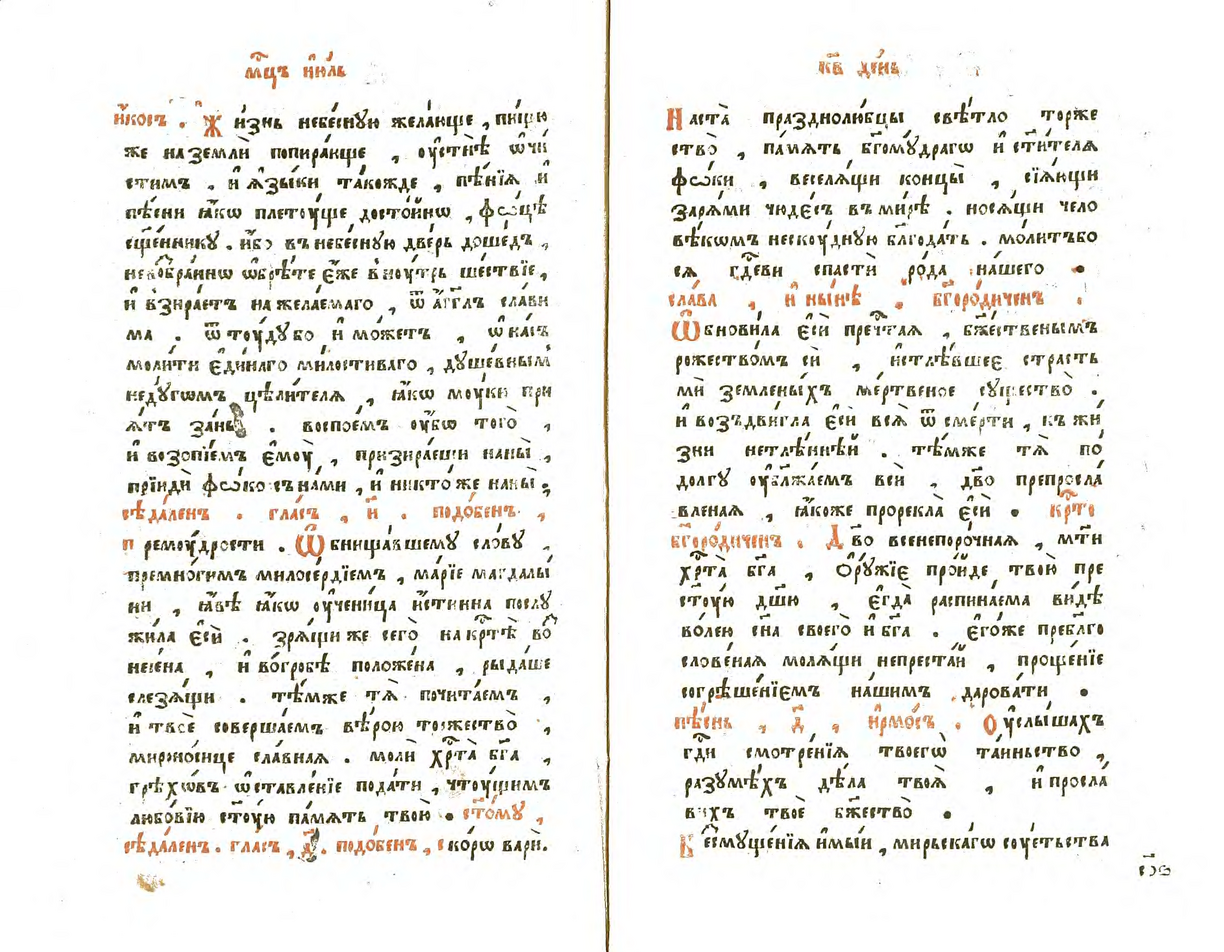 мⷭ҇цъ їю́ль
и҆́косъ . Жи́знь небе́сную жела́юще , пи́щю
же на землѝ попира́юще , ᲂу҆стнѣ̀ ѡ҆чи́
стимъ . и҆ ꙗ҆зы́ки та́кожде , пѣ́нїѧ и҆
пѣ́сни ꙗ҆́кѡ плетꙋ́ще досто́йнѡ , фѡцѣ̀
сщ҃е́ннику . и҆́бо въ небе́сную две́рь доше́дъ ,
невозбра́ннѡ ѡ҆брѣ́те є҆́же внꙋ́трь ше́ствїе ,
и҆ взира́етъ на жела́емаго , ѿ а҆́гг҃лъ сла́ви
ма . ѿтꙋ́ду бо и҆ мо́жетъ , ѡ҆ на́съ
моли́ти є҆ди́наго ми́лостиваго , душе́внымъ
неду́гѡмъ цѣли́телѧ , ꙗ҆́кѡ мꙋ́ки при
ѧ́тъ занѐ . воспое́мъ ᲂу҆́бѡ того̀ ,
и҆ возопїе́мъ є҆мꙋ̀ , призира́еши на ны̀ ,
прїидѝ фѡко съ на́ми , и҆ никто́же на ны̀ .
сѣда́ленъ . гла́съ , и҃ . подо́бенъ ,
премꙋ́дрости . Ѡ҆бнища́вшему сло́ву ,
премно́гимъ милосе́рдїемъ , марі́е магдалы́
ни , ꙗ҆́вѣ ꙗ҆́кѡ ᲂу҆чени́ца и҆́стинна послу
жи́ла є҆сѝ . зрѧ́щи же сего̀ на крⷭ҇тѣ̀ во́з
несе́на , и҆ во гро́бѣ положе́на , рыда́ше
слезѧ́щи . тѣ́мже тѧ̀ почита́емъ ,
и҆ твоѐ соверша́емъ вѣ́рою торжество̀ ,
мироно́сице сла́вная . молѝ хрⷭ҇та̀ бг҃а ,
грѣхѡ́въ ѡ҆ставле́нїе пода́ти , чтꙋ́щимъ
любо́вїю ст҃ꙋ́ю па́мѧть твою̀ . ст҃о́му ,
сѣда́ленъ . гла́съ , д҃ . подо́бенъ , ско́рѡ вари̂ .
к҃в де́нь
Наста̀ празднолю́бцы свѣ́тло торже
ство̀ , па́мѧть бг҃ому́драгѡ и҆ ст҃и́телѧ
фѡки̂ , веселѧ́щи концы̀ , сїѧ́ющи
зарѧ́ми чюде́съ въ ми́рѣ . носѧ́щи чело
вѣ́кѡмъ нескꙋ́дную бл҃года́ть . моли́тъбо
сѧ гдⷭ҇еви спастѝ ро́да на́шего .
сла́ва , и҆ ны́нѣ . бг҃оро́диченъ .
Ѡ҆бнови́ла є҆сѝ пречⷭ҇тая , бж҃е́ственымъ
рожество́мъ сѝ , и҆стлѣ́вшее страсть
мѝ земле́ныхъ ме́ртвеное существо̀ .
и҆ воздви́гла є҆сѝ всѧ̀ ѿ сме́рти , къ жи́
зни нетлѣ́ннѣй . тѣ́мже тѧ̀ по
до́лгу ᲂу҆блажа́емъ всѝ , дв҃о препросла́
вленая , ꙗ҆́коже прорекла̀ є҆сѝ . крⷭ҇то
бг҃оро́диченъ . Дв҃о всенепоро́чная , мт҃и
хрⷭ҇та̀ бг҃а , ѻ҆ру́жїе про́йде твою̀ пре
ст҃ꙋ́ю дш҃ю , є҆гда̀ распина́ема ви́дѣ
во́лею сн҃а своего̀ и҆ бг҃а . є҆го́же пребл҃го
слове́ная молѧ́щи непреста́й , проще́нїе
согрѣше́нїемъ на́шимъ дарова́ти .
пѣ́снь , д҃ , і҆рмо́съ . Оу҆слы́шахъ
гдⷭ҇и смотре́нїѧ твоегѡ̀ та́иньство ,
разумѣ́хъ дѣла̀ твоѧ̀ , и҆ просла́
вихъ твоѐ бж҃ество̀ .
Без смуще́нїѧ и҆мы́и , мирьска́гѡ сꙋ́етьства